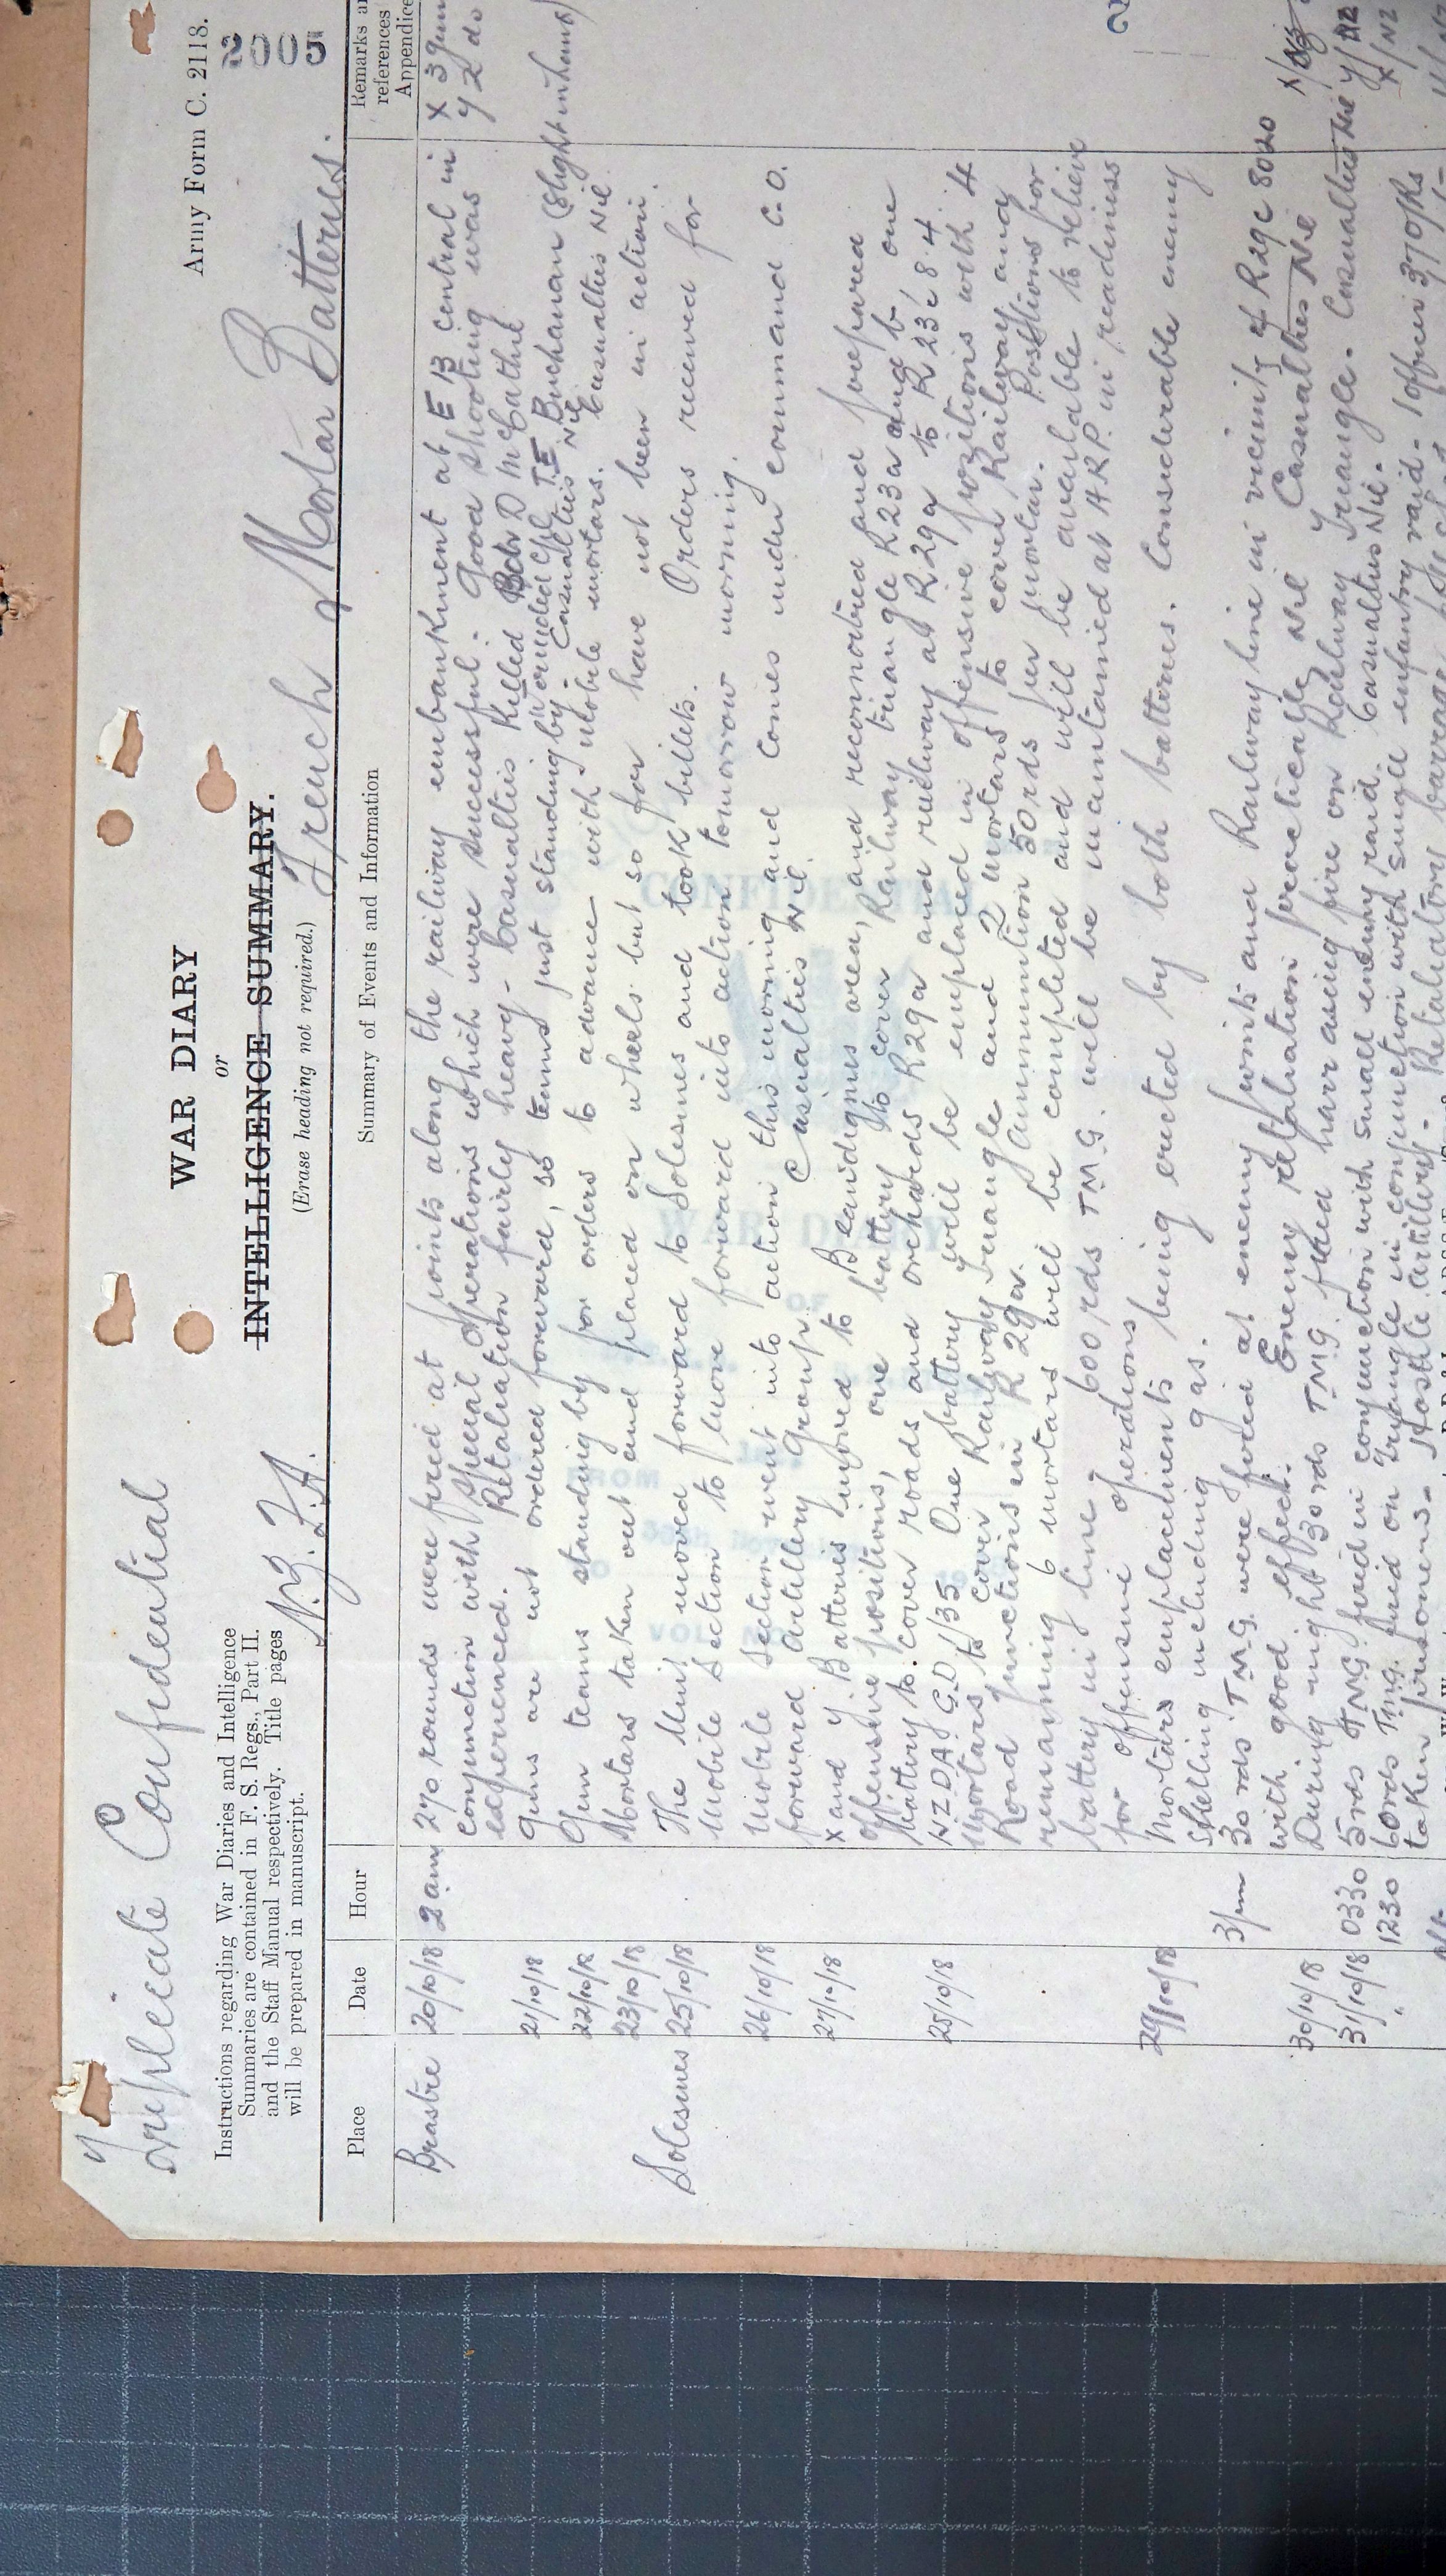 Triplicate Confidential
Army Form C. 2118.
2005
Instructions regarding War Diaries and Intelligence
Summaries are contained in F. S. Regs., Part II.
and the Staff Manual respectively. Title pages
will be prepared in manuscript.
WAR DIARY
or
INTELLIGENCE SUMMARY.
(Erase heading not required.)
N.Z.F.A. Trench Mortar Batteries.
Place Date Hour Summary of Events and Information Remarks and references Appendices
Briastre 20/10/18 2 am 270 rounds were fired at points along the railway embankment at E 13 central in X 3 gun
conjunction with special operations which were successful. Good shooting was Y 2 do
experienced. Retaliation fairly heavy. Casualties Killed Bdr D McCathie
Wounded Cpl T.E. Buchanan (slight in hand)
21/10/18 Guns are not ordered forward, so teams just standing by Casualties Nil
22/10/18 Gun teams standing by for orders to advance with mobile mortars. Casualties Nil.
23/10/18 Mortars taken out and placed on wheels but so far have not been in action.
Solesmes 25/10/18 The Unit moved forward to Solesmes and took billets. Orders received for
Mobile Section to move forward into action tomorrow morning.
26/10/18 Mobile Section went into action this morning and comes under command C.O.
forward Artillery Group. Casualties Nil.
27/10/18 X and Y Batteries moved to Beaudignies area, and reconnoitred and prepared
offensive positions, one battery to cover Railway triangle R23a and b one
battery to cover roads and orchards R29a and railway at R29a to R23c 8.4
28/10/18 NZDA G.D 1/35 One battery will be emplaced in offensive positions with 4
Mortars to cover Railway triangle and 2 mortars to cover Railway and
Road junctions in R 29a. Ammunition 50 rds per mortar. Positions for
remaining 6 mortars will be completed and will be available to relieve
battery in line. 600 rds T.M.G. will be maintained at A.R.P. in readiness
for offensive operations
29/10/18 Mortars emplacements being erected by both batteries. Considerable enemy
shelling including gas.
3 pm 30 rds T.M.G. were fired at enemy points and Railway line in vicinity of R29c 8020
with good effect. Enemy retaliation practically Nil Casualties Nil
30/10/18 During night 30 rds T.M.G. fired harrassing fire on Railway Triangle. Casualties Nil
31/10/18 0330 5 rds T.M.G. fired in conjunction with small enemy raid. Casualties Nil.
" 1230 60 rds T.M.G. fired on Triangle in conjunction with single infantry raid. 1 officer 37 O/Rs
taken prisoners. Hostile artillery. Retaliatory barrage
CONFIDENTIAL
WAR DIARY
OF
FROM
TO
VOL NO